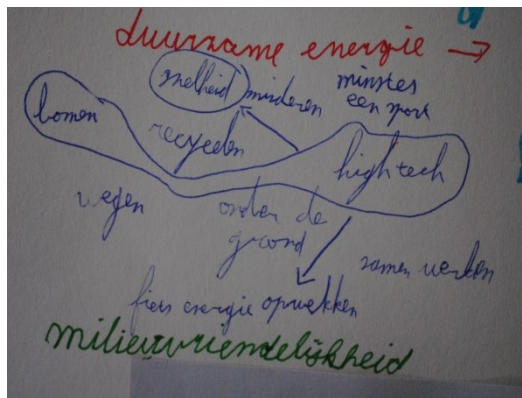 duurzame energie →
snelheid minderen
minstes
een sport
bomen
recycelen
high tech
wegen
onder de
grond
samen werken
fiets energie opwekken
milieuvriendelijkheid